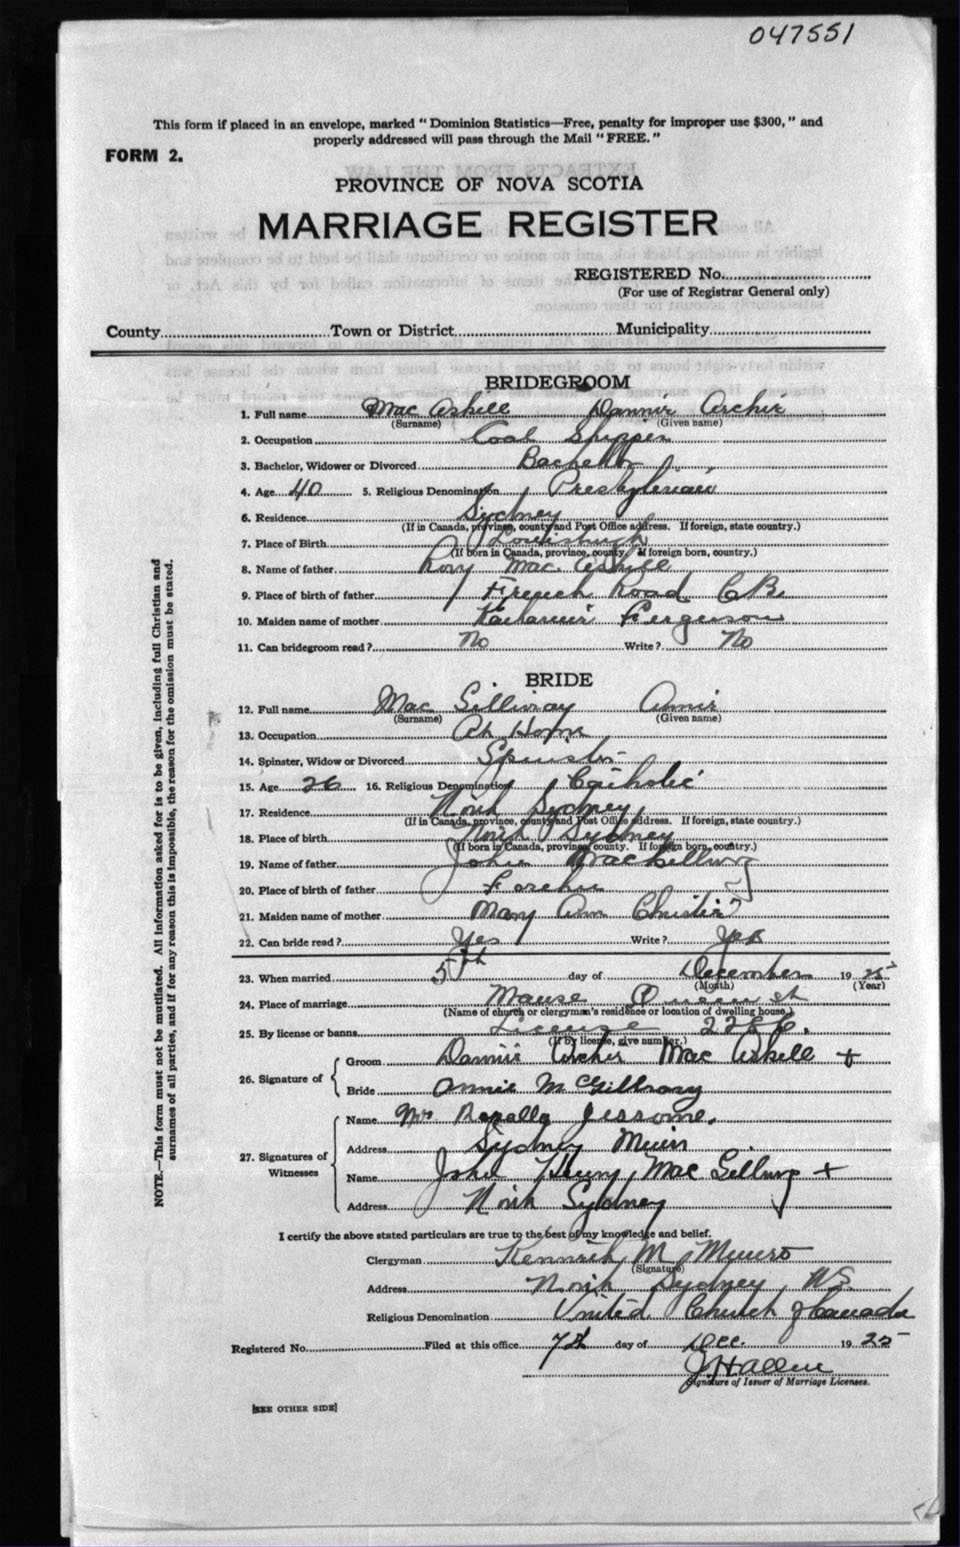 047551
This form if placed in an envelope, marked "Dominion Statistics—Free, penalty for improper use $300," and
properly addressed will pass through the Mail "FREE."
FORM 2.
PROVINCE OF NOVA SCOTIA
MARRIAGE REGISTER
REGISTERED No.
(For use of Registrar General only)
County Town or District Municipality
BRIDEGROOM
1. Full name Mac Askell Dannie Archie
(Surname) (Given name)
2. Occupation Coal Shipper
3. Bachelor, Widower or Divorced Bachellor
4. Age 40 5. Religious Denomination Presbyterian
6. Residence Sydney
(If in Canada, province, county and Post Office address. If foreign, state country.)
7. Place of Birth Louisburgh
(If born in Canada, province, county. If foreign born, country.)
8. Name of father Rory Mac Askell
9. Place of birth of father French Road C.B.
10. Maiden name of mother Ferguson
11. Can bridegroom read? No Write? No
BRIDE
12. Full name Mac Gillivray Annie
(Surname) (Given name)
13. Occupation At Home
14. Spinster, Widow or Divorced Spinster
15. Age 26 16. Religious Denomination Catholic
17. Residence North Sydney
(If in Canada, province, county and Post Office address. If foreign, state country.)
18. Place of birth North Sydney
(If born in Canada, province, county. If foreign born, country.)
19. Name of father John
20. Place of birth of father Forchu
21. Maiden name of mother Mary Ann Christie
22. Can bride read? Yes Write? Yes
23. When married 5th day of December 1925
(Month) (Year)
24. Place of marriage Manse Queen St
(Name of church or clergyman's residence or location of dwelling house.)
25. By license or banns License 2286.
(If by license, give number.)
26. Signature of
Groom Dannie Archie Mac Askell +
Bride Annie McGillvary
27. Signatures of Witnesses
Name Mrs Jessome.
Address Sydney Mines
Name John Henry Mac Gillivray +
Address North Sydney
I certify the above stated particulars are true to the best of my knowledge and belief.
Clergyman Kenneth M Munro
(Signature)
Address North Sydney N.S.
Religious Denomination United Church of Canada
Registered No. Filed at this office 7th day of Dec. 1925
J. H Allen
Signature of Issuer of Marriage Licenses.
[SEE OTHER SIDE]
NOTE.—This form must not be mutilated. All information asked for is to be given, including full Christian and
surnames of all parties, and if for any reason this is impossible, the reason for the omission must be stated.